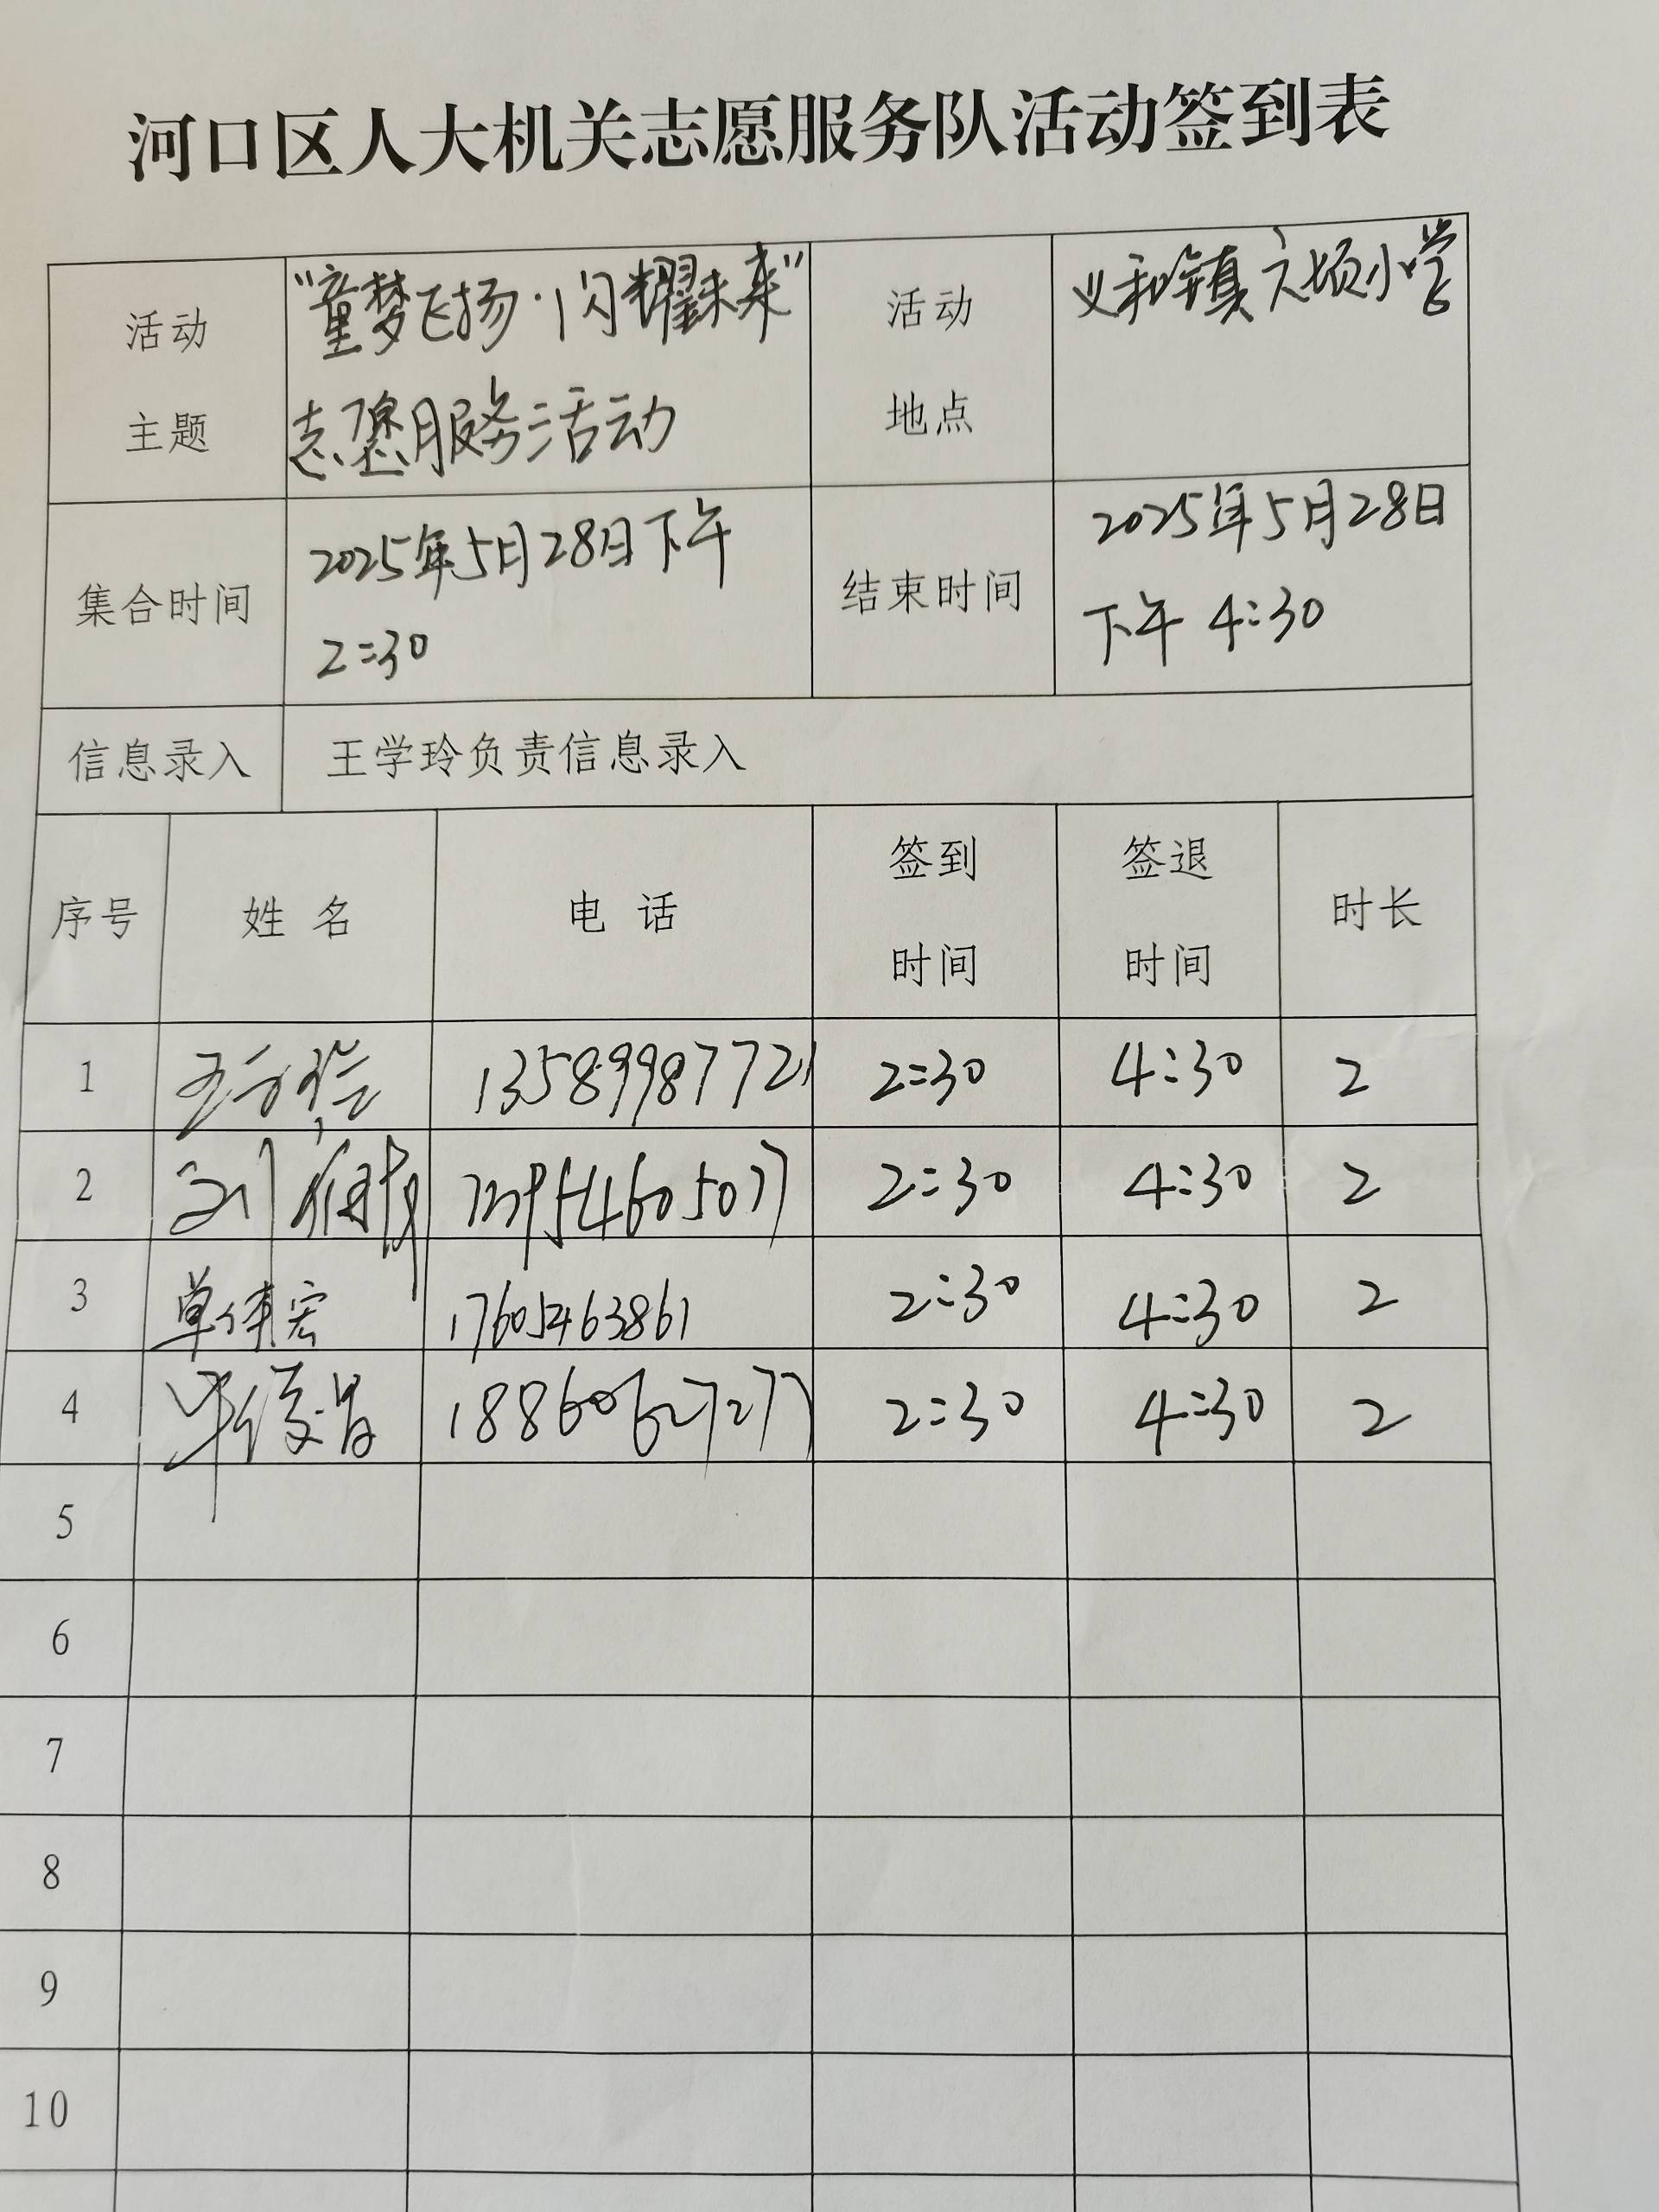 河口区人大机关志愿服务队活动签到表
活动 主题 “童梦飞扬·闪耀未来” 志愿服务活动 活动 地点 义和镇六顷小学
集合时间 2025年5月28日下午 2:30 结束时间 2025年5月28日 下午 4:30
信息录入 王学玲负责信息录入
序号 姓名 电话 签到 时间 签退 时间 时长
1 13589987721 2:30 4:30 2
2 刘 2:30 4:30 2
3 单体宏 17605463861 2:30 4:30 2
4 18860627277 2:30 4:30 2
5
6
7
8
9
10